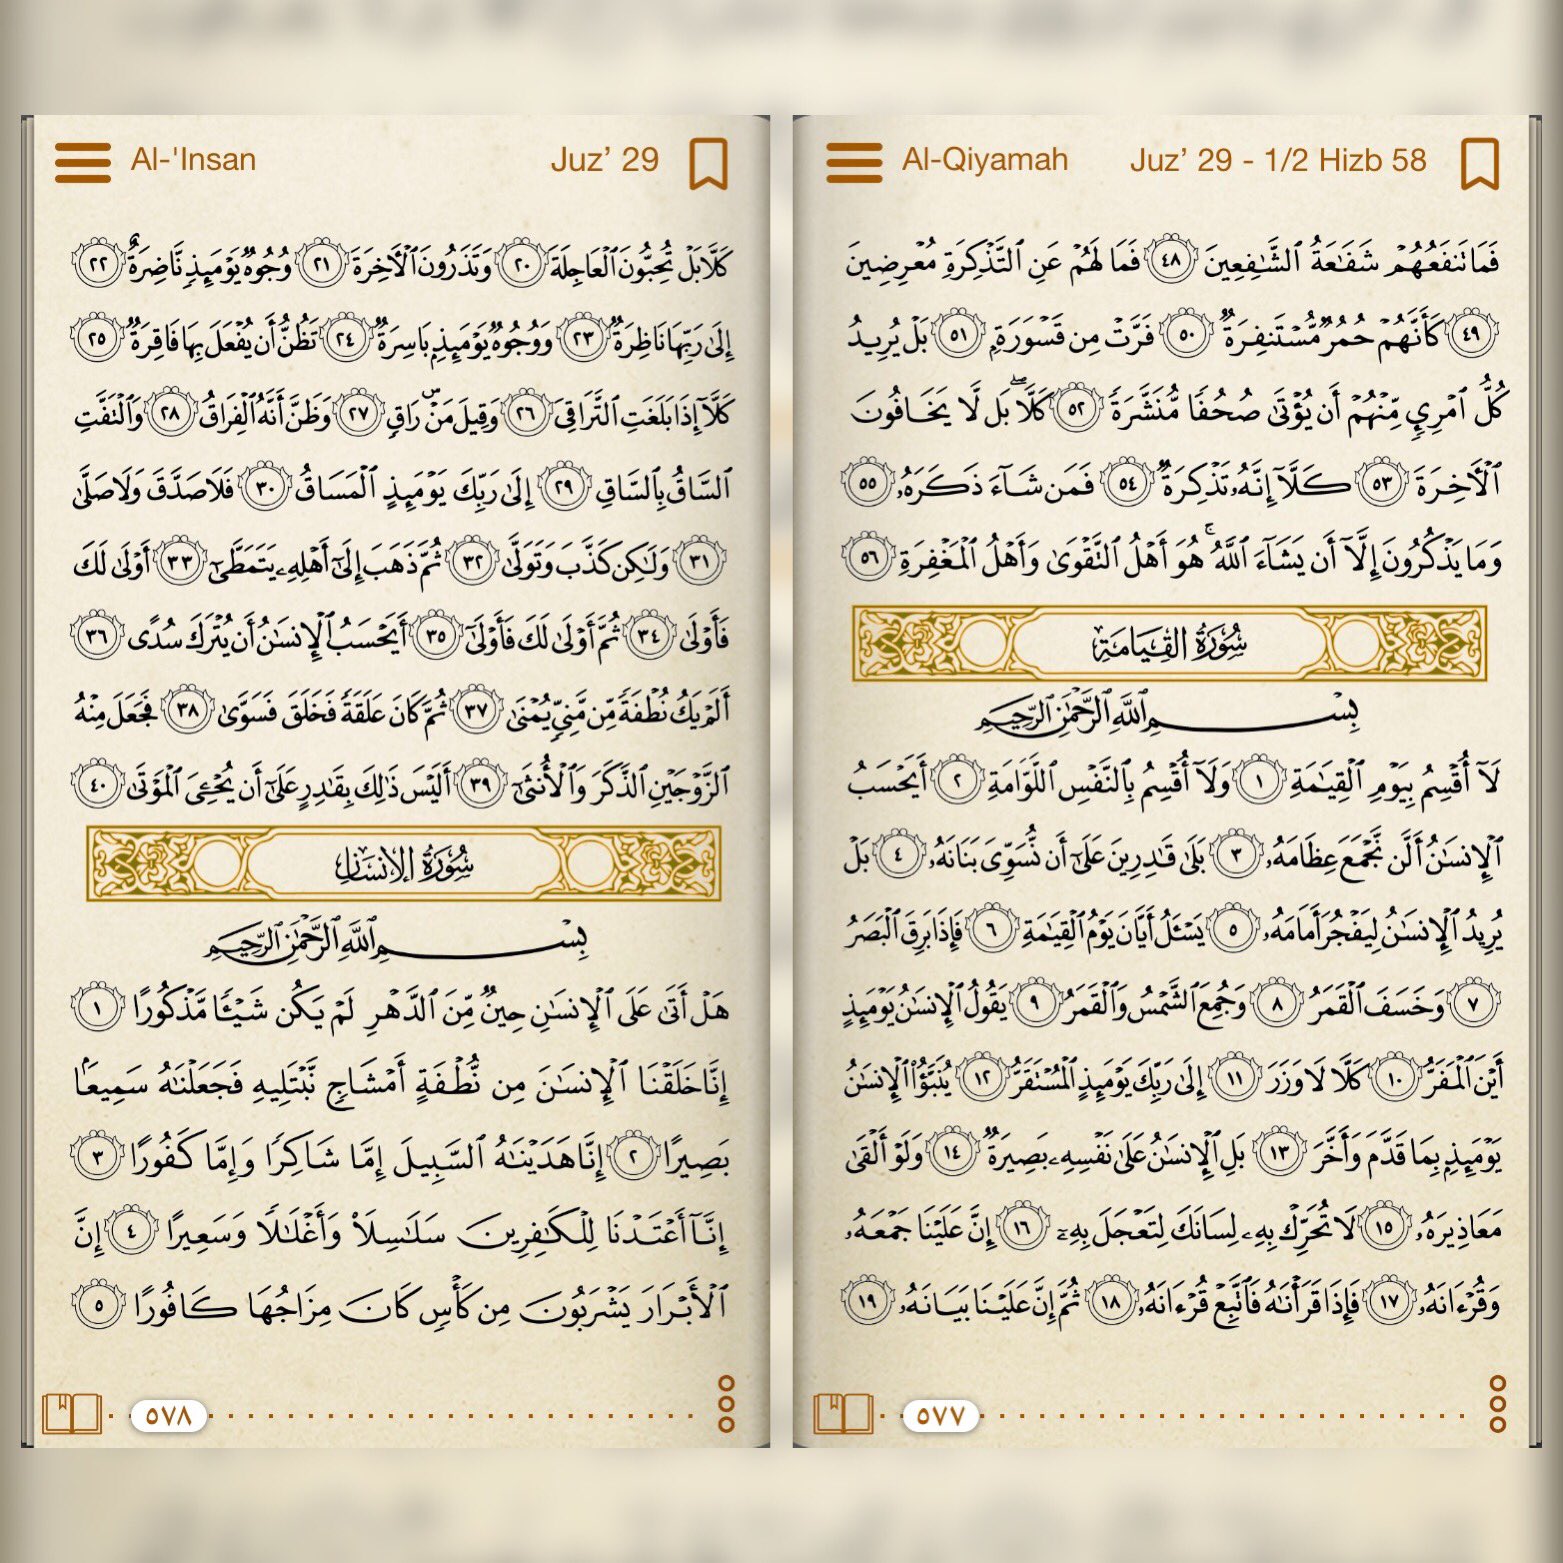 Al-Qiyamah
Juz’ 29 - 1/2 Hizb 58
فَمَا تَنفَعُهُمْ شَفَٰعَةُ ٱلشَّٰفِعِينَ ٤٨ فَمَا لَهُمْ عَنِ ٱلتَّذْكِرَةِ مُعْرِضِينَ
٤٩ كَأَنَّهُمْ حُمُرٌ مُّسْتَنفِرَةٌ ٥٠ فَرَّتْ مِن قَسْوَرَةٍۭ ٥١ بَلْ يُرِيدُ
كُلُّ ٱمْرِئٍ مِّنْهُمْ أَن يُؤْتَىٰ صُحُفًا مُّنَشَّرَةً ٥٢ كَلَّا ۖ بَل لَّا يَخَافُونَ
ٱلْـَٔاخِرَةَ ٥٣ كَلَّآ إِنَّهُۥ تَذْكِرَةٌ ٥٤ فَمَن شَآءَ ذَكَرَهُۥ ٥٥
وَمَا يَذْكُرُونَ إِلَّآ أَن يَشَآءَ ٱللَّهُ ۚ هُوَ أَهْلُ ٱلتَّقْوَىٰ وَأَهْلُ ٱلْمَغْفِرَةِ ٥٦
سُورَةُ القِيَامَةِ
بِسْمِ ٱللَّهِ ٱلرَّحْمَٰنِ ٱلرَّحِيمِ
لَآ أُقْسِمُ بِيَوْمِ ٱلْقِيَٰمَةِ ١ وَلَآ أُقْسِمُ بِٱلنَّفْسِ ٱللَّوَّامَةِ ٢ أَيَحْسَبُ
ٱلْإِنسَٰنُ أَلَّن نَّجْمَعَ عِظَامَهُۥ ٣ بَلَىٰ قَٰدِرِينَ عَلَىٰٓ أَن نُّسَوِّىَ بَنَانَهُۥ ٤ بَلْ
يُرِيدُ ٱلْإِنسَٰنُ لِيَفْجُرَ أَمَامَهُۥ ٥ يَسْـَٔلُ أَيَّانَ يَوْمُ ٱلْقِيَٰمَةِ ٦ فَإِذَا بَرِقَ ٱلْبَصَرُ
٧ وَخَسَفَ ٱلْقَمَرُ ٨ وَجُمِعَ ٱلشَّمْسُ وَٱلْقَمَرُ ٩ يَقُولُ ٱلْإِنسَٰنُ يَوْمَئِذٍ
أَيْنَ ٱلْمَفَرُّ ١٠ كَلَّا لَا وَزَرَ ١١ إِلَىٰ رَبِّكَ يَوْمَئِذٍ ٱلْمُسْتَقَرُّ ١٢ يُنَبَّؤُا۟ ٱلْإِنسَٰنُ
يَوْمَئِذٍۭ بِمَا قَدَّمَ وَأَخَّرَ ١٣ بَلِ ٱلْإِنسَٰنُ عَلَىٰ نَفْسِهِۦ بَصِيرَةٌ ١٤ وَلَوْ أَلْقَىٰ
مَعَاذِيرَهُۥ ١٥ لَا تُحَرِّكْ بِهِۦ لِسَانَكَ لِتَعْجَلَ بِهِۦٓ ١٦ إِنَّ عَلَيْنَا جَمْعَهُۥ
وَقُرْءَانَهُۥ ١٧ فَإِذَا قَرَأْنَٰهُ فَٱتَّبِعْ قُرْءَانَهُۥ ١٨ ثُمَّ إِنَّ عَلَيْنَا بَيَانَهُۥ ١٩
٥٧٧
Al-'Insan
Juz’ 29
كَلَّا بَلْ تُحِبُّونَ ٱلْعَاجِلَةَ ٢٠ وَتَذَرُونَ ٱلْـَٔاخِرَةَ ٢١ وُجُوهٌ يَوْمَئِذٍ نَّاضِرَةٌ ٢٢
إِلَىٰ رَبِّهَا نَاظِرَةٌ ٢٣ وَوُجُوهٌ يَوْمَئِذٍۭ بَاسِرَةٌ ٢٤ تَظُنُّ أَن يُفْعَلَ بِهَا فَاقِرَةٌ ٢٥
كَلَّآ إِذَا بَلَغَتِ ٱلتَّرَاقِىَ ٢٦ وَقِيلَ مَنْ ۜ رَاقٍ ٢٧ وَظَنَّ أَنَّهُ ٱلْفِرَاقُ ٢٨ وَٱلْتَفَّتِ
ٱلسَّاقُ بِٱلسَّاقِ ٢٩ إِلَىٰ رَبِّكَ يَوْمَئِذٍ ٱلْمَسَاقُ ٣٠ فَلَا صَدَّقَ وَلَا صَلَّىٰ
٣١ وَلَٰكِن كَذَّبَ وَتَوَلَّىٰ ٣٢ ثُمَّ ذَهَبَ إِلَىٰٓ أَهْلِهِۦ يَتَمَطَّىٰٓ ٣٣ أَوْلَىٰ لَكَ
فَأَوْلَىٰ ٣٤ ثُمَّ أَوْلَىٰ لَكَ فَأَوْلَىٰٓ ٣٥ أَيَحْسَبُ ٱلْإِنسَٰنُ أَن يُتْرَكَ سُدًى ٣٦
أَلَمْ يَكُ نُطْفَةً مِّن مَّنِىٍّ يُمْنَىٰ ٣٧ ثُمَّ كَانَ عَلَقَةً فَخَلَقَ فَسَوَّىٰ ٣٨ فَجَعَلَ مِنْهُ
ٱلزَّوْجَيْنِ ٱلذَّكَرَ وَٱلْأُنثَىٰٓ ٣٩ أَلَيْسَ ذَٰلِكَ بِقَٰدِرٍ عَلَىٰٓ أَن يُحْـِۧىَ ٱلْمَوْتَىٰ ٤٠
سُورَةُ الإِنسَانِ
بِسْمِ ٱللَّهِ ٱلرَّحْمَٰنِ ٱلرَّحِيمِ
هَلْ أَتَىٰ عَلَى ٱلْإِنسَٰنِ حِينٌ مِّنَ ٱلدَّهْرِ لَمْ يَكُن شَيْـًٔا مَّذْكُورًا ١
إِنَّا خَلَقْنَا ٱلْإِنسَٰنَ مِن نُّطْفَةٍ أَمْشَاجٍ نَّبْتَلِيهِ فَجَعَلْنَٰهُ سَمِيعًۢا
بَصِيرًا ٢ إِنَّا هَدَيْنَٰهُ ٱلسَّبِيلَ إِمَّا شَاكِرًا وَإِمَّا كَفُورًا ٣
إِنَّآ أَعْتَدْنَا لِلْكَٰفِرِينَ سَلَٰسِلَا۟ وَأَغْلَٰلًا وَسَعِيرًا ٤ إِنَّ
ٱلْأَبْرَارَ يَشْرَبُونَ مِن كَأْسٍ كَانَ مِزَاجُهَا كَافُورًا ٥
٥٧٨